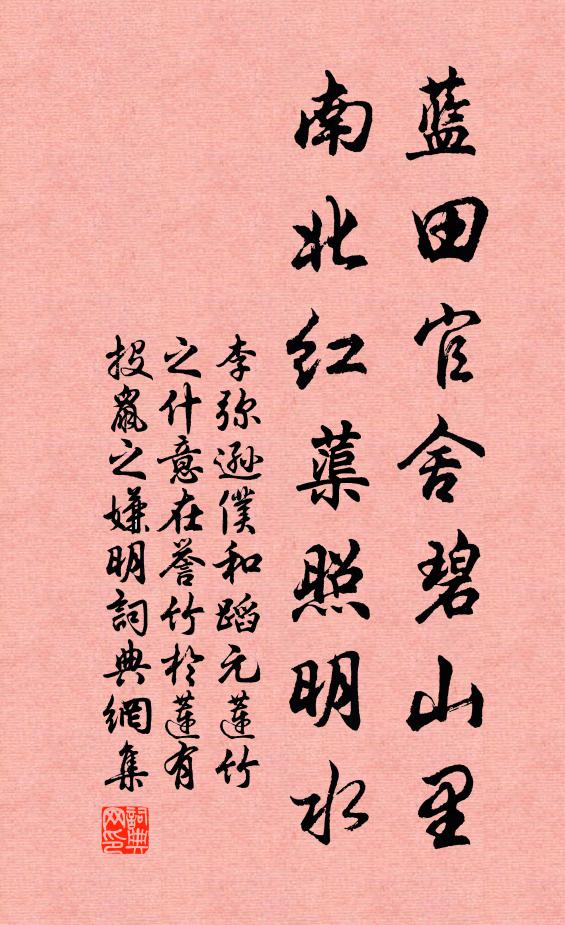 藍田官舍碧山里
南北紅蕖照明水
李弥遜僕和蹈元蓮竹
之什意在誉竹於蓮有
投鼠之嫌明詞典網集
詞典
网印